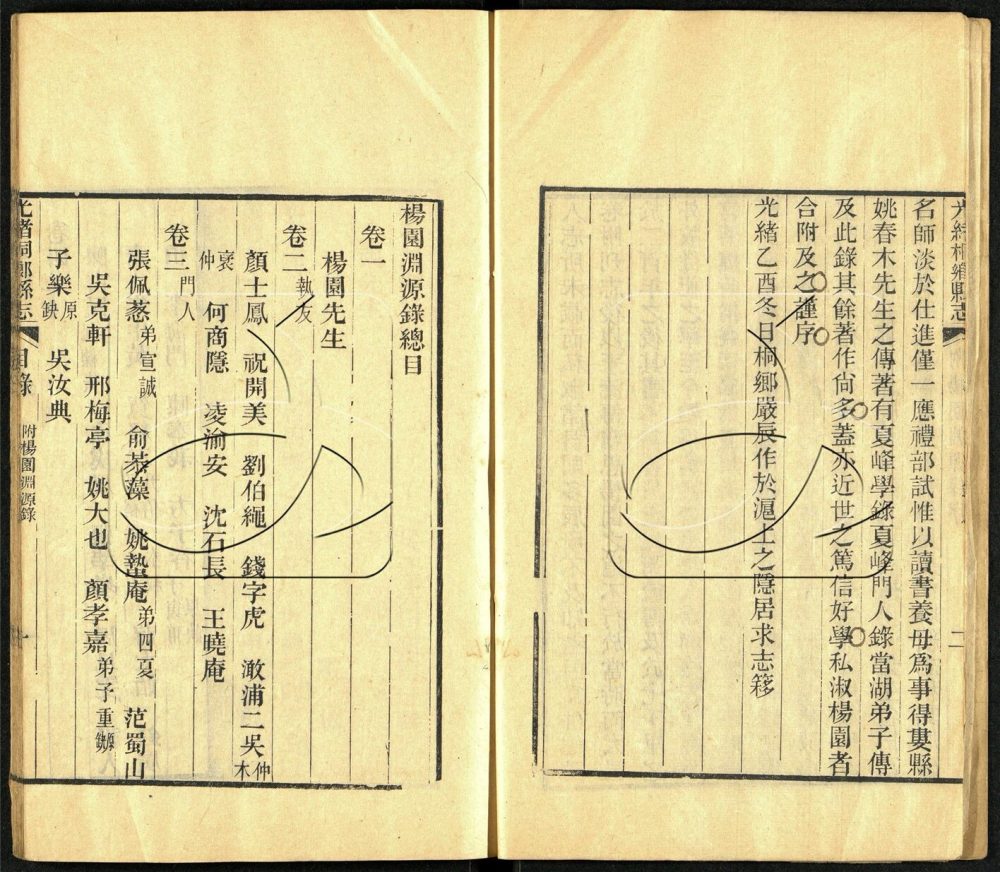 光緒桐鄉縣志
二
名師淡於仕進僅一應禮部試惟以讀書養母爲事得婁縣
姚春木先生之傳著有夏峰學錄夏峰門人錄當湖弟子傳
及此錄其餘著作尙多蓋亦近世之篤信好學私淑楊園者
合附及之謹序
光緒乙酉冬日桐鄉嚴辰作於滬上之隱居求志簃
楊園淵源錄總目
卷一
楊園先生
卷二執友
顏士鳳 祝開美 劉伯繩 錢字虎 澉浦二吳仲木
裒仲 何商隱 凌渝安 沈石長 王曉庵
卷三門人
張佩蔥弟宣誠 俞 藻 姚蟄庵弟四夏 范蜀山
吳克軒 邢梅亭 姚大也 顏孝嘉弟子重原缺
子樂原缺 吳汝典
光緒桐鄉縣志 目錄 附楊園淵源錄